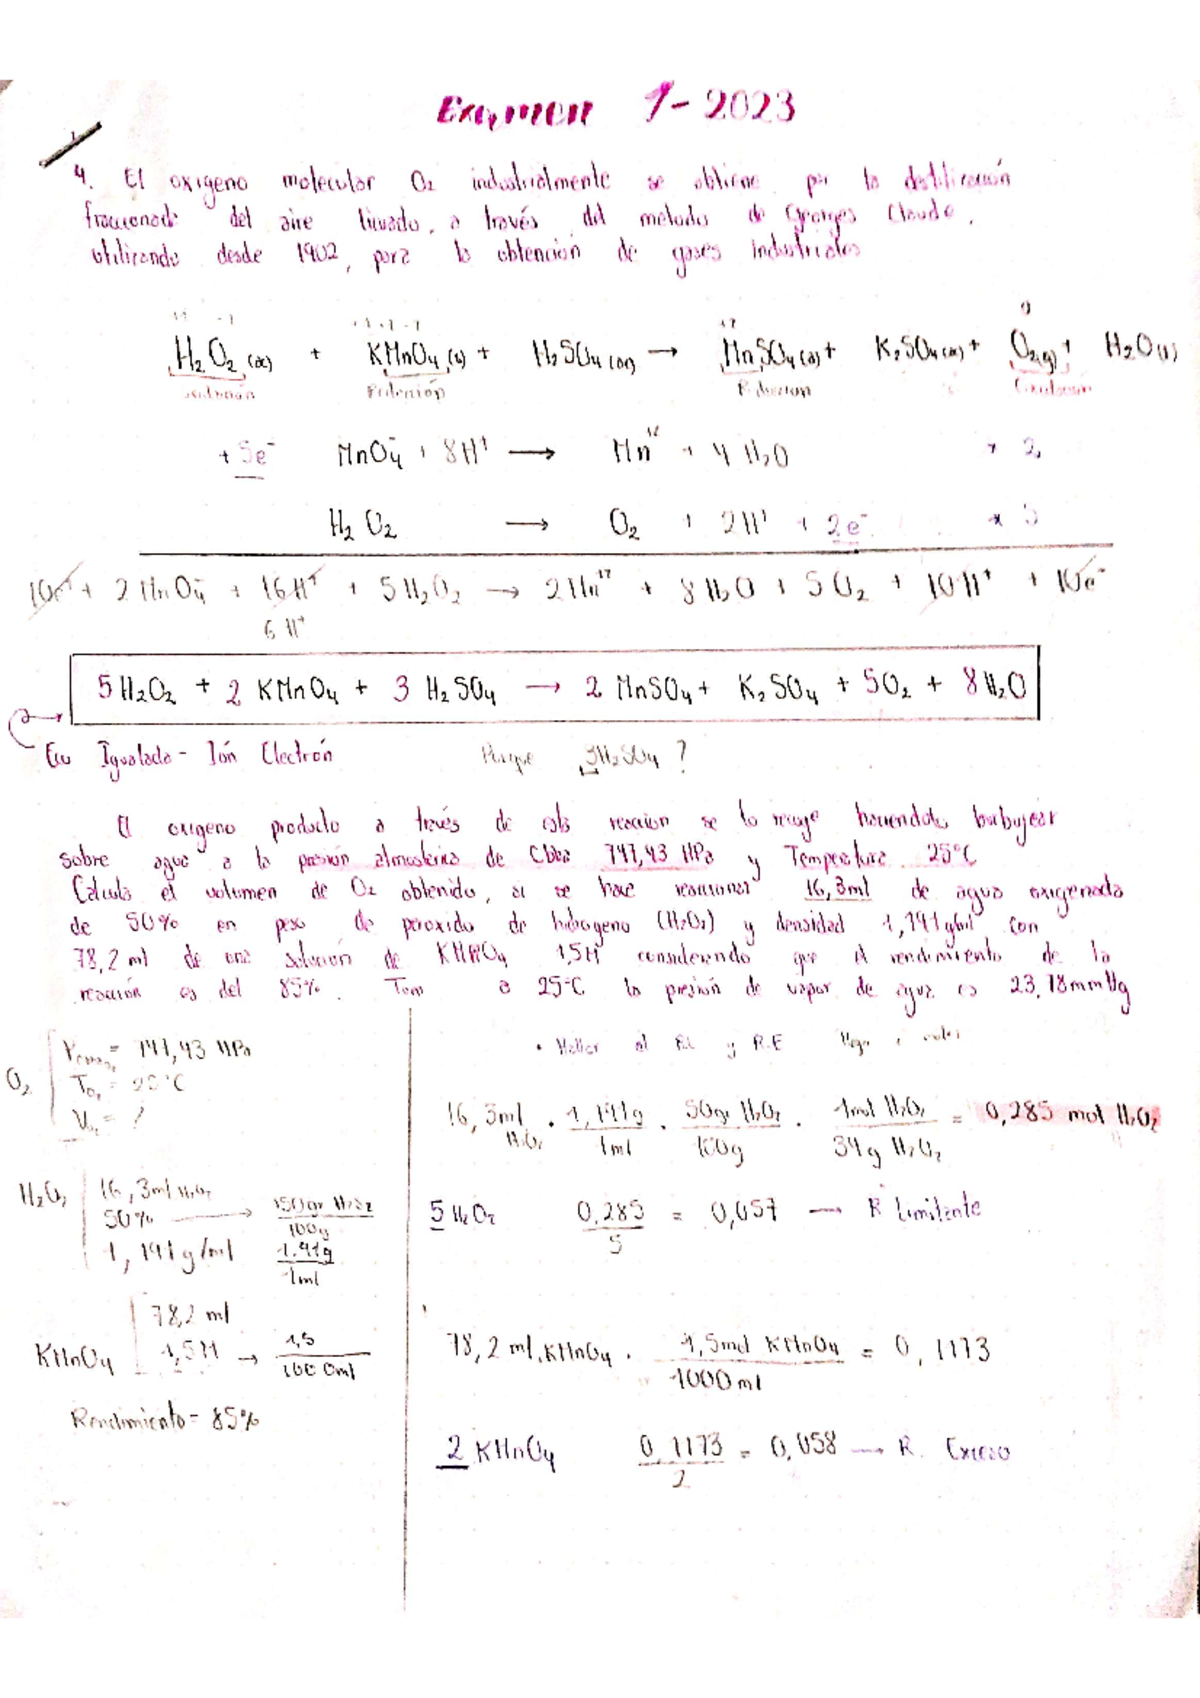 Examen 1-2023
4. El oxigeno molecular O2 industrialmente se obtiene por la destilación
fraccionada del aire licuado, a través del metodo de Georges Claude,
utilizando desde 1902, para la obtención de gases industriales
+1 -1 +1 +7 -2 +2 0
H2O2 (ac) + KMnO4 (s) + H2SO4 (ac) → MnSO4 (a) + K2SO4 (ac) + O2(g) + H2O(l)
oxidación Reducción Reduccion Oxidacion
+ 5e⁻ MnO4⁻ + 8H⁺ → Mn⁺² + 4 H2O * 2
H2O2 → O2 + 2H⁺ + 2e⁻ * 5
10e⁻ + 2MnO4⁻ + 16H⁺ + 5H2O2 → 2Mn⁺² + 8H2O + 5O2 + 10H⁺ + 10e⁻
6H⁺
5H2O2 + 2 KMnO4 + 3 H2SO4 → 2 MnSO4 + K2SO4 + 5O2 + 8H2O
Ecu Igualada - Ión Electrón Porque 3H2SO4 ?
El oxigeno producto a través de esta reaccion se lo recoge haciendolo burbujear
sobre agua a la presión atmosferica de Cbba 747,43 HPa y Temperatura 25°C
Calcula el volumen de O2 obtenido, si se hace reaccionar 16,3ml de agua oxigenada
de 50% en peso de peroxido de hidrogeno (H2O2) y densidad 1,191 g/ml con
78,2 ml de una solucion de KMnO4 1,5M considerando que el rendimiento de la
reacción es del 85%. Tom a 25°C la presión de vapor de agua es 23,78mmHg
O2 = 747,43 HPa
TO2 = 25°C
VO2 = ?
H2O2 16,3ml H2O2
50% → 50gr H2O2 / 100g
1,191g/ml 1.191g / 1ml
KMnO4 78,2 ml
1,5M → 1,5 / 1000ml
Rendimiento = 85%
• Hallar el R.L y R.E
16,3ml H2O2 · 1,191g / 1ml · 50gr H2O2 / 100g · 1mol H2O2 / 34g H2O2 = 0,285 mol H2O2
5 H2O2 0,285 / 5 = 0,057 → R Limitante
78,2 ml KMnO4 · 1,5mol KMnO4 / 1000ml = 0,1173
2 KMnO4 0,1173 / 2 = 0,058 → R. Exceso